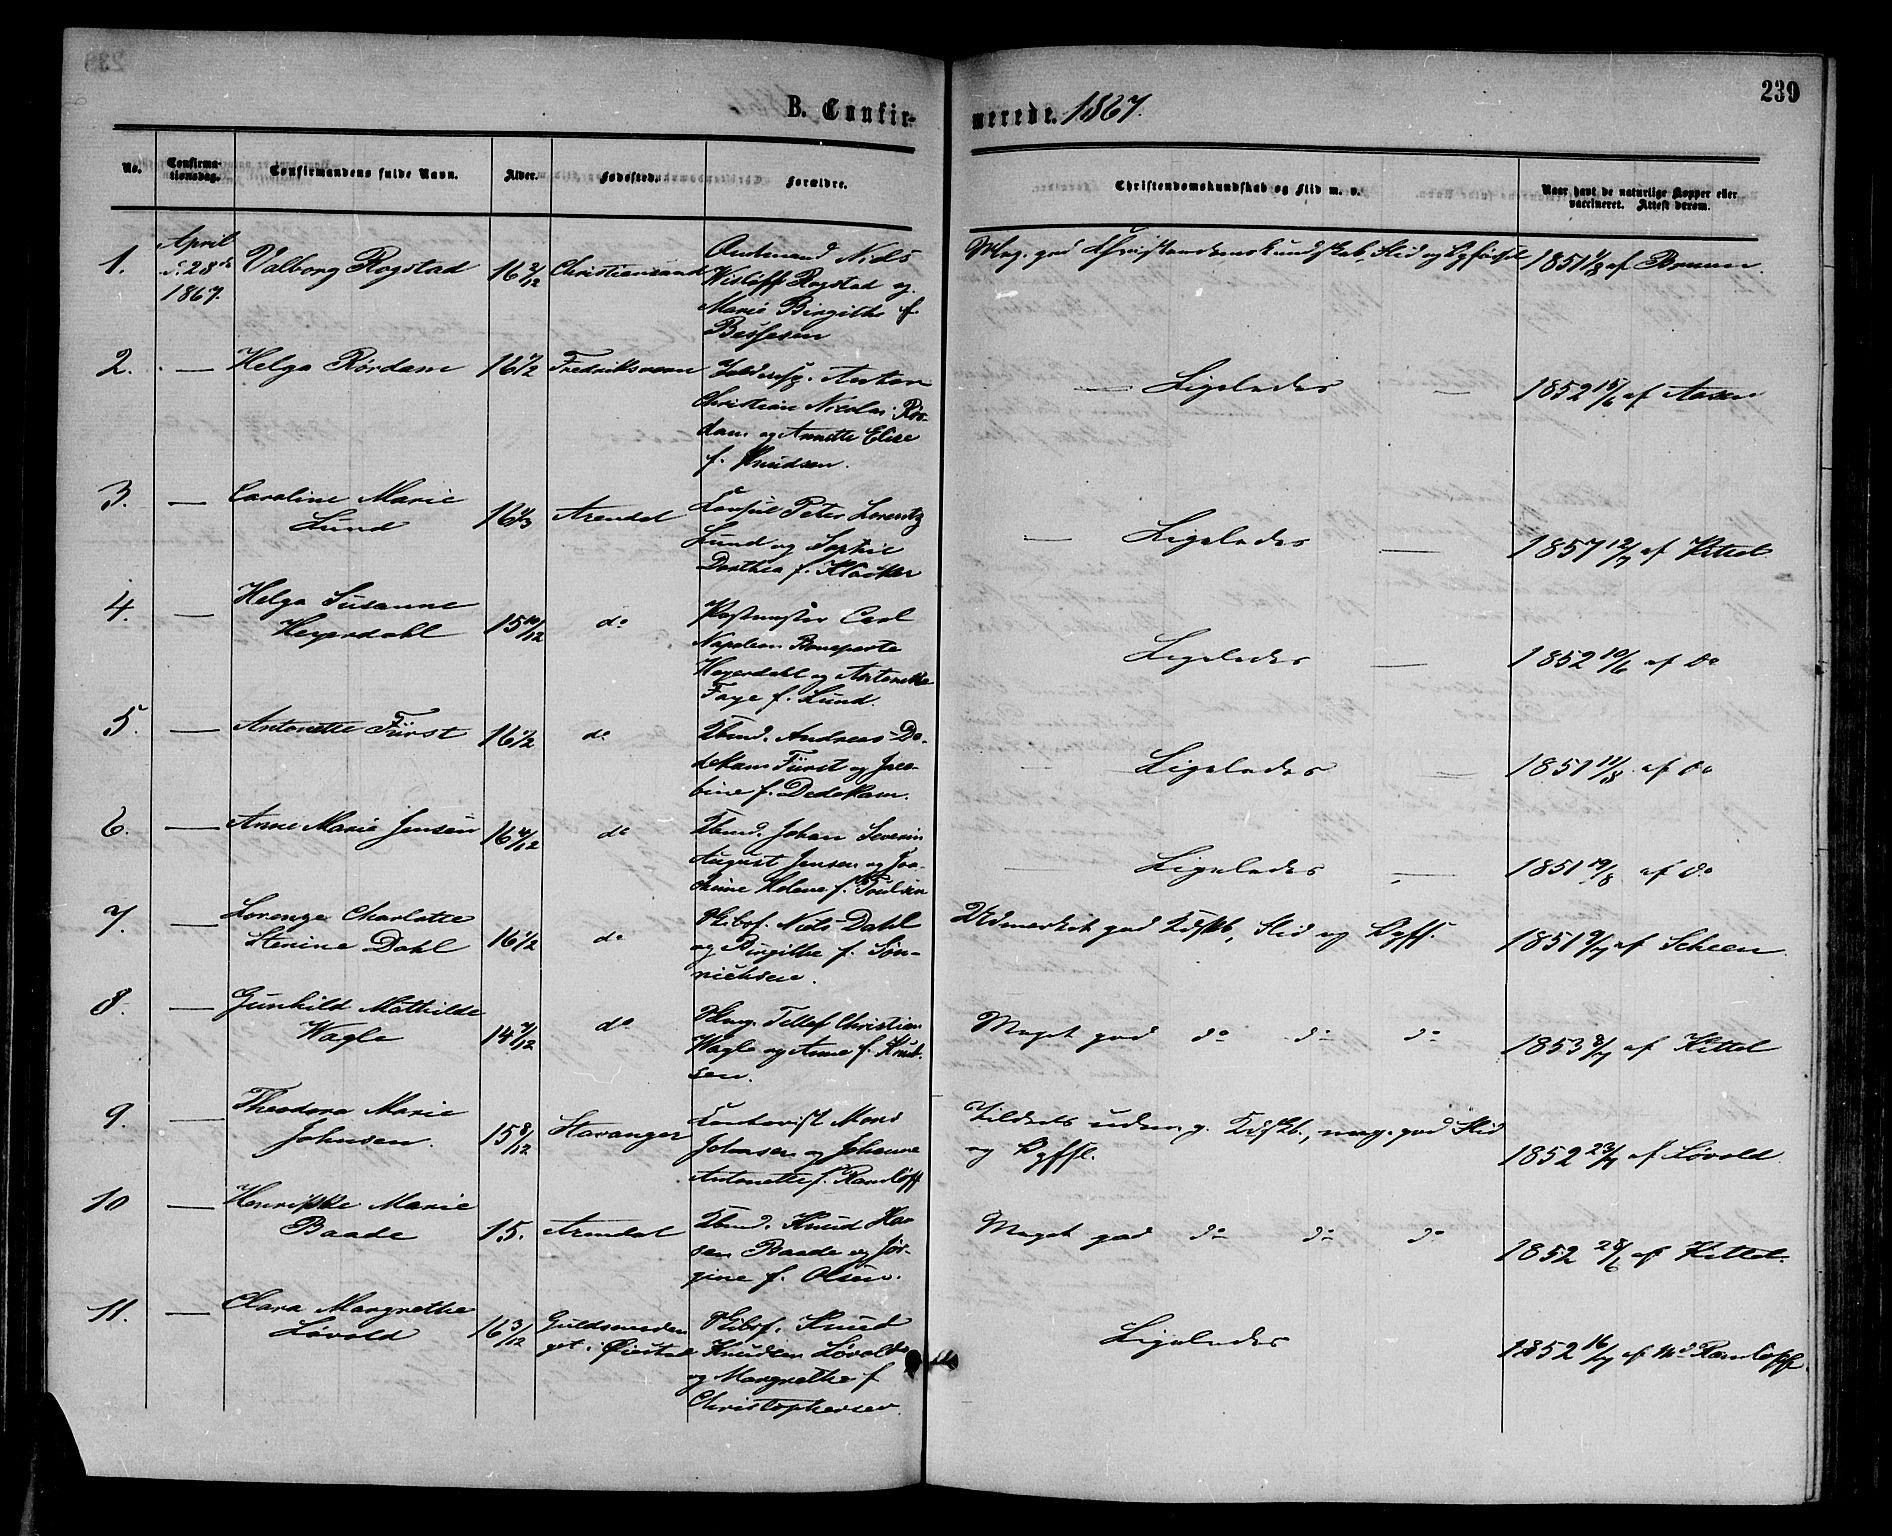 239
B. Confirmerede. 1867.
No.
Confirmationsdag.
Confirmandens fulde Navn.
Alder.
Fødested.
Forældre.
Christendomskundskab og Flid m. v.
Naar havt de naturlige Kopper eller vaccineret. Attest derom.
1. April d. 28de 1867. Valborg Rogstad 16 2/12 Christianssand
Amtmand Niels
Wisløff Rogstad og
Marie Birgithe f.
Bessesen
Meg. god Christendomskundskab, Flid og Opførsel 1851 1/8 af
2. — Helga Rørdam 16 1/2 Fredriksværn
Toldinsp. Anton
Christian Nicolai Rør-
dam og Annette Elise
f. Knudsen.
— Ligeledes — 1852 15/6 af Aasen
3. — Caroline Marie
Lund 16 1/3 Arendal
Consul Peter Lorentz
Lund og Sophie
Dorthea f. Kløcker
— Ligeledes — 1857 12/7 af Kittel
4. — Helga Susanne
Heyerdahl 15 10/12 do
Postmester Carl
Napoleon Bonaparte
Heyerdahl og Antonette
Faye f. Lund.
Ligeledes — 1852 10/6 af do
5. — Antonette Fürst 16 1/2 do
Kbmd. Andreas De-
dekam Fürst og Jaco-
bine f. Dedekam.
— Ligeledes — 1851 11/8 af do
6. — Anne Marie Jensen 16 4/12 do
Kbmd. Johan Severin
August Jensen og Joa-
chime Helene f. Poulsen
— Ligeledes — 1851 19/8 af do
7. — Lorenze Charlotte
Stenine Dahl 16 1/2 do
Skibsf. Niels Dahl
og Birgithe f. Søn-
nichsen.
Udmærket god Kdskb, Flid og Opff. 1851 9/7 af Scheen
8. — Gunhild Mathilde
Wagle 14 7/12 do
Tellef Christian
Wagle og Anne f. Knud-
sen.
Meget god do do do 1853 8/7 af Kittel
9. — Theodora Marie
Johnsen. 15 8/12 Stavanger
Contorist Mons
Johnsen og Johanne
Antonette f. Ramløff
Tildels udm. g. Kdskb., meg. god Flid
og Opffl.
1852 23/7 af Løvold.
10 — Henrikke Marie
Baade 15. Arendal
Kbmd. Knud Han
sen Baade og Jør-
gine f. Olsen.
Meget god do do do 1852 28/6 af Kittel.
11. — Clara Margrethe
Løvold 16 3/12 Guldsmeden
get. i Øiestad
Skibsf. Knud
Knudsen Løvold
og Margrethe f
Christophersen.
Ligeledes 1852 16/7 af Md Ramløff